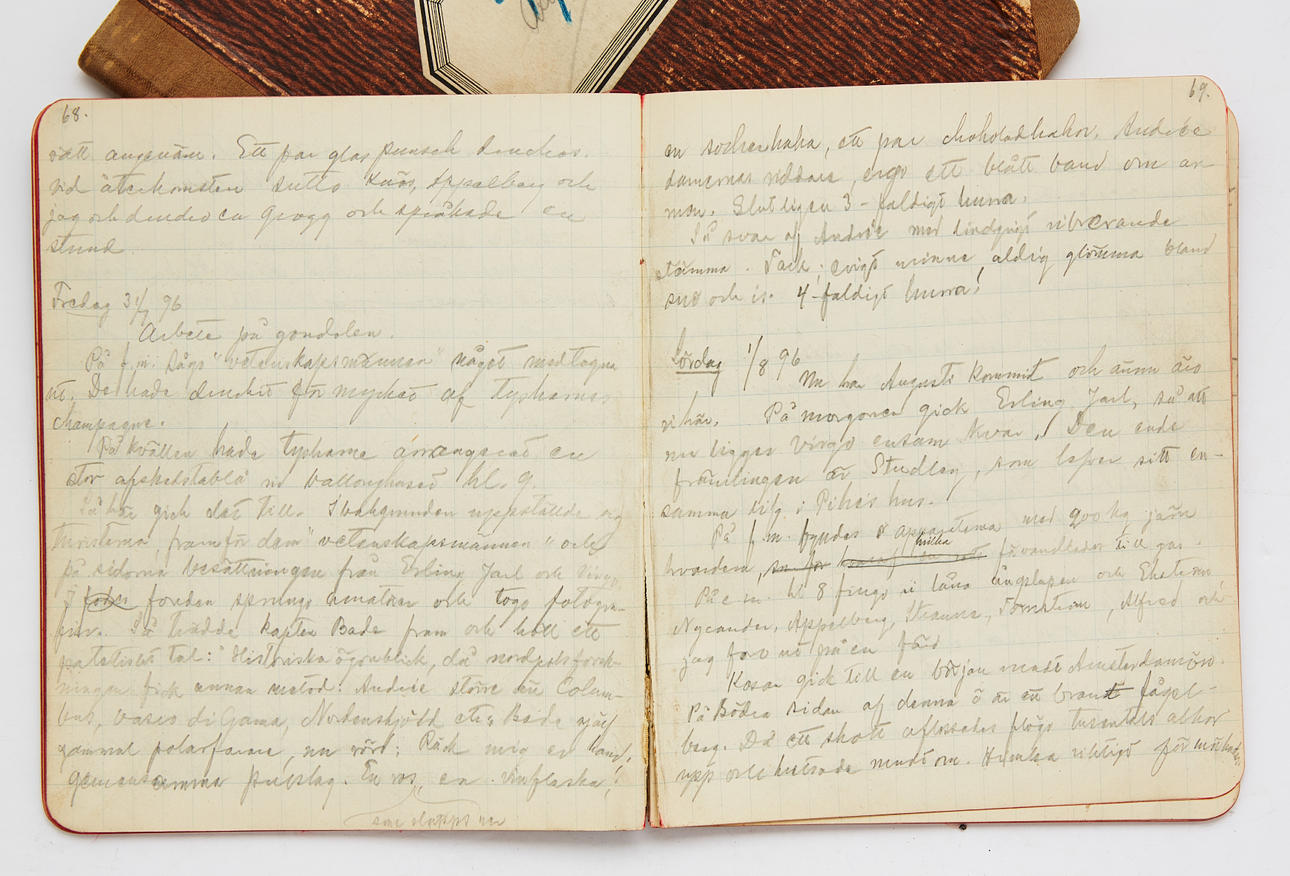 68.
rätt angenäm. Ett par glas punsch druckos.
vid återkomsten sutto Knös, Appelberg och
jag och drucko en grogg och språkade en
stund.
Fredag 31/7 96
Arbete på gondolen.
På f.m. sågs "vetenskapsmännen" något medtagna
ut. De hade druckit för mycket af tyskarnas
champagne.
På kvällen hade tyskarna arrangerat en
stor afskedstablå vid ballonghuset kl. 9.
Så här gick det till. I bakgrunden uppställde sig
turisterna, framför dem "vetenskapsmännen" och
på sidorna besättningen från Erling Jarl och Virgo.
I fonden sprungo amatörer och togo fotogra-
fier. Så trädde kapten Bade fram och höll ett
patetiskt tal: "Historiska ögonblick, då nordpolsforsk-
ningen fick annan metod! Andrée större än Colum-
bus, Vasco di Gama, Nordenskjöld etc. Bade själf
gammal polarfarare, nu rörd: Räck mig er hand,
gemensamma pulsslag. En ros, en vinflaska,
som släppts ur
69.
en sockerkaka, ett par chokoladkakor. Andrée
damernas riddare, ergo ett blått band om ar-
men. Slutligen 3-faldigt hurra.
Så svar af Andrée med lindrigt vibrerande
stämma. Tack; evigt minne aldrig glömma bland
snö och is. 4-faldigt hurra!
Lördag 1/8 96
Nu har Augusti kommit och ännu äro
vi här. På morgonen gick Erling Jarl, så att
nu ligger Virgo ensam kvar. Den enda
främlingen är Studley, som lefver sitt en-
samma lif i Pikes hus.
På f.m. fyndes 8 apparaterna med 900 kg järn
hvardera, hvilka förvandlades till gas.
På e.m. kl 8 fingo vi låna ångslupen och Ekström,
Nycander, Appelberg, Stauner, Törnström, Alfred och
jag foro ut på en färd
Kosan gick till en början mot Amsterdamön.
På södra sidan af denna ö är ett brant fågel-
berg. Då ett skott aflossades flögo tusentals alkor
upp och kretsade rundt om. Himlen riktigt förmörkades